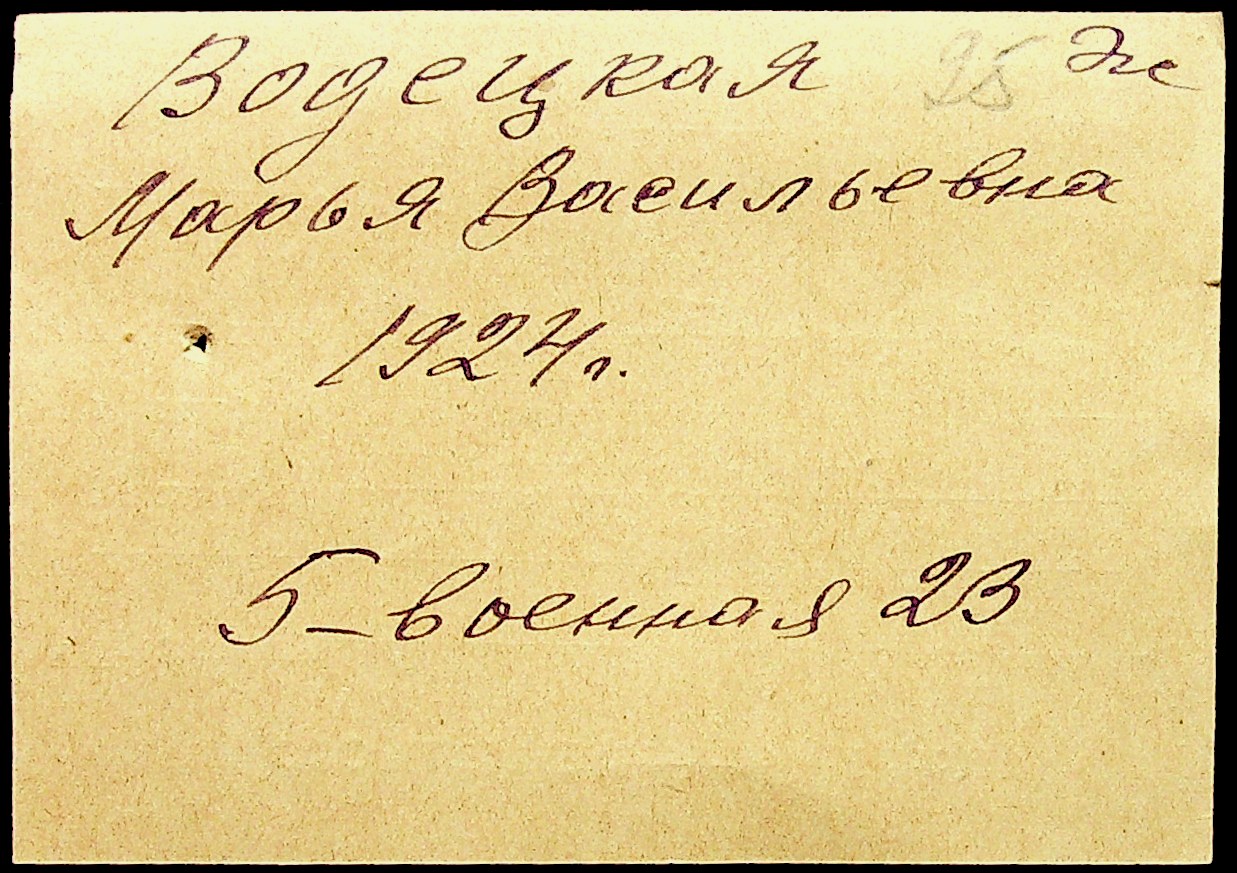 Водецкая 95 Эк
Марья Васильевна
1924г.
5-военная 23